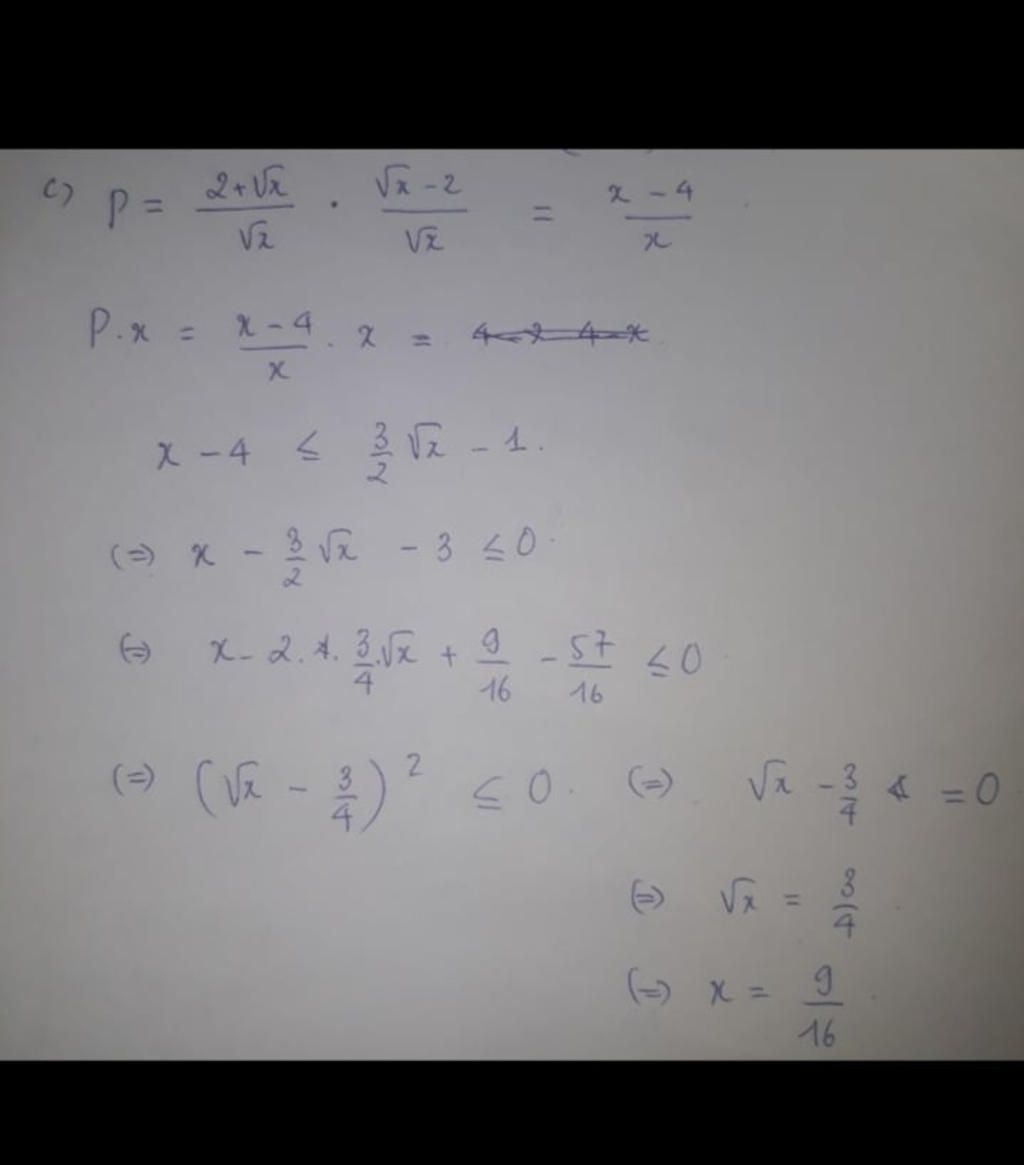 c) P = (2+√x)/√x · (√x - 2)/√x = (x - 4)/x
P.x = (x - 4)/x . x =
x - 4 ≤ 3/2 √x - 1.
(=) x - 3/2 √x - 3 ≤ 0.
(=) x - 2. 1. 3/4 .√x + 9/16 - 57/16 ≤ 0
(=) (√x - 3/4)² ≤ 0. (=) √x - 3/4 = 0
(=) √x = 3/4
(=) x = 9/16.